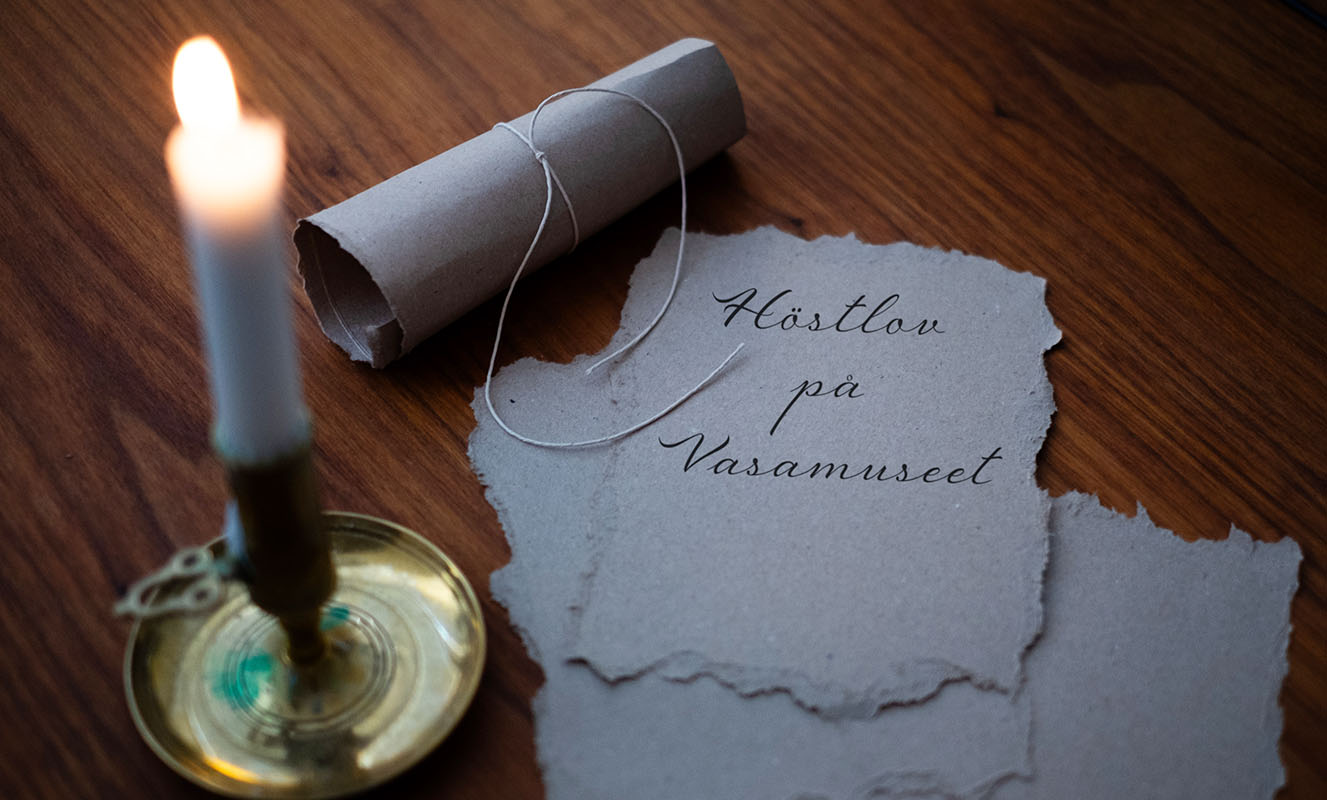 Höstlov
på
Vasamuseet